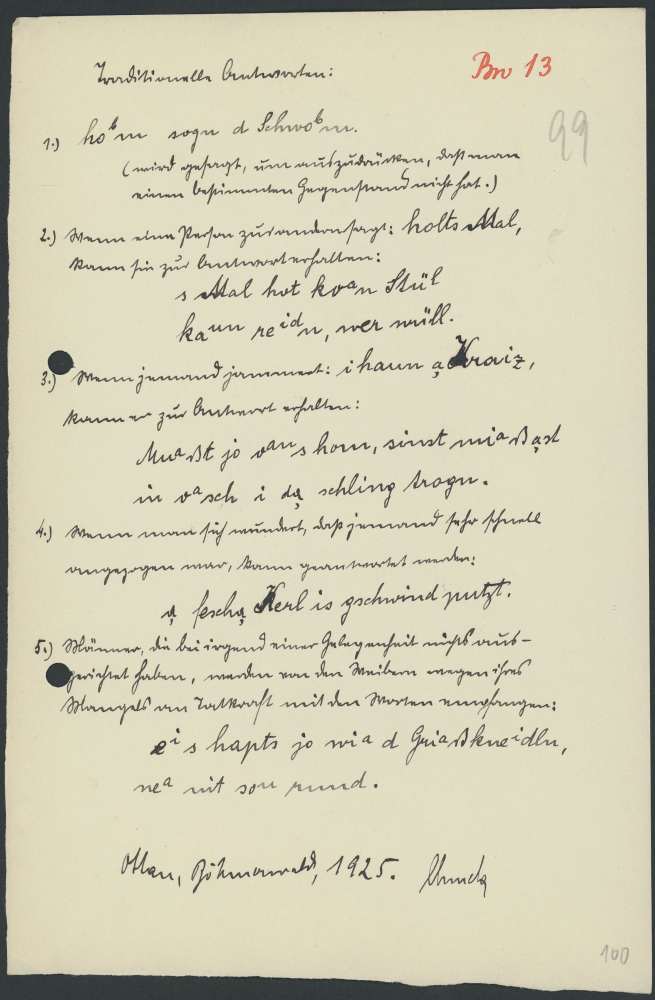 Traditionelle Antworten:
Bn 13
99
1.) hoᵇm sogn d Schwoᵇm.
(wird gesagt, um auszudrücken, daß man
einen bestimmten Gegenstand nicht hat.)
2.) Wenn eine Person zur andern sagt: holts Mal,
kann sie zur Antwort erhalten:
s Mal hot koᵃn Stüˡ
kaᵘⁿ reⁱdn, wer wüll.
3.) Wenn jemand jammert: i haun ą Kraiz,
kann er zur Antwort erhalten:
Muᵃßt jo oans hom, sinst miᵃßąst
in oᵃsch i dą schling trogn.
4.) Wenn man sich wundert, daß jemand sehr schnell
angezogen war, kann geantwortet werden:
ą feschą Kerl is gschwind putzt.
5.) Männer, die bei irgend einer Gelegenheit nichts aus-
gerichtet haben, werden von den Weibern wegen ihres
Mangels an Tatkraft mit den Worten empfangen:
eⁱs hapts jo wiᵃ d Griaßkneⁱdln,
neᵃ nit soᵘ rund.
Ottau, Böhmerwald, 1925.
100